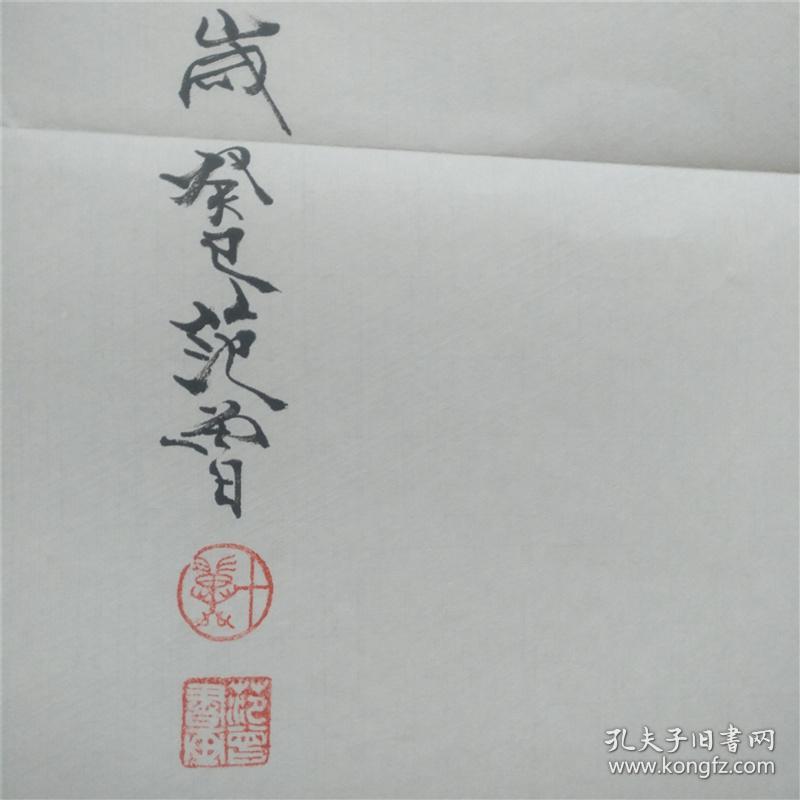 歲癸巳范曾
十翼
范曾
孔夫子旧书网
www.kongfz.com